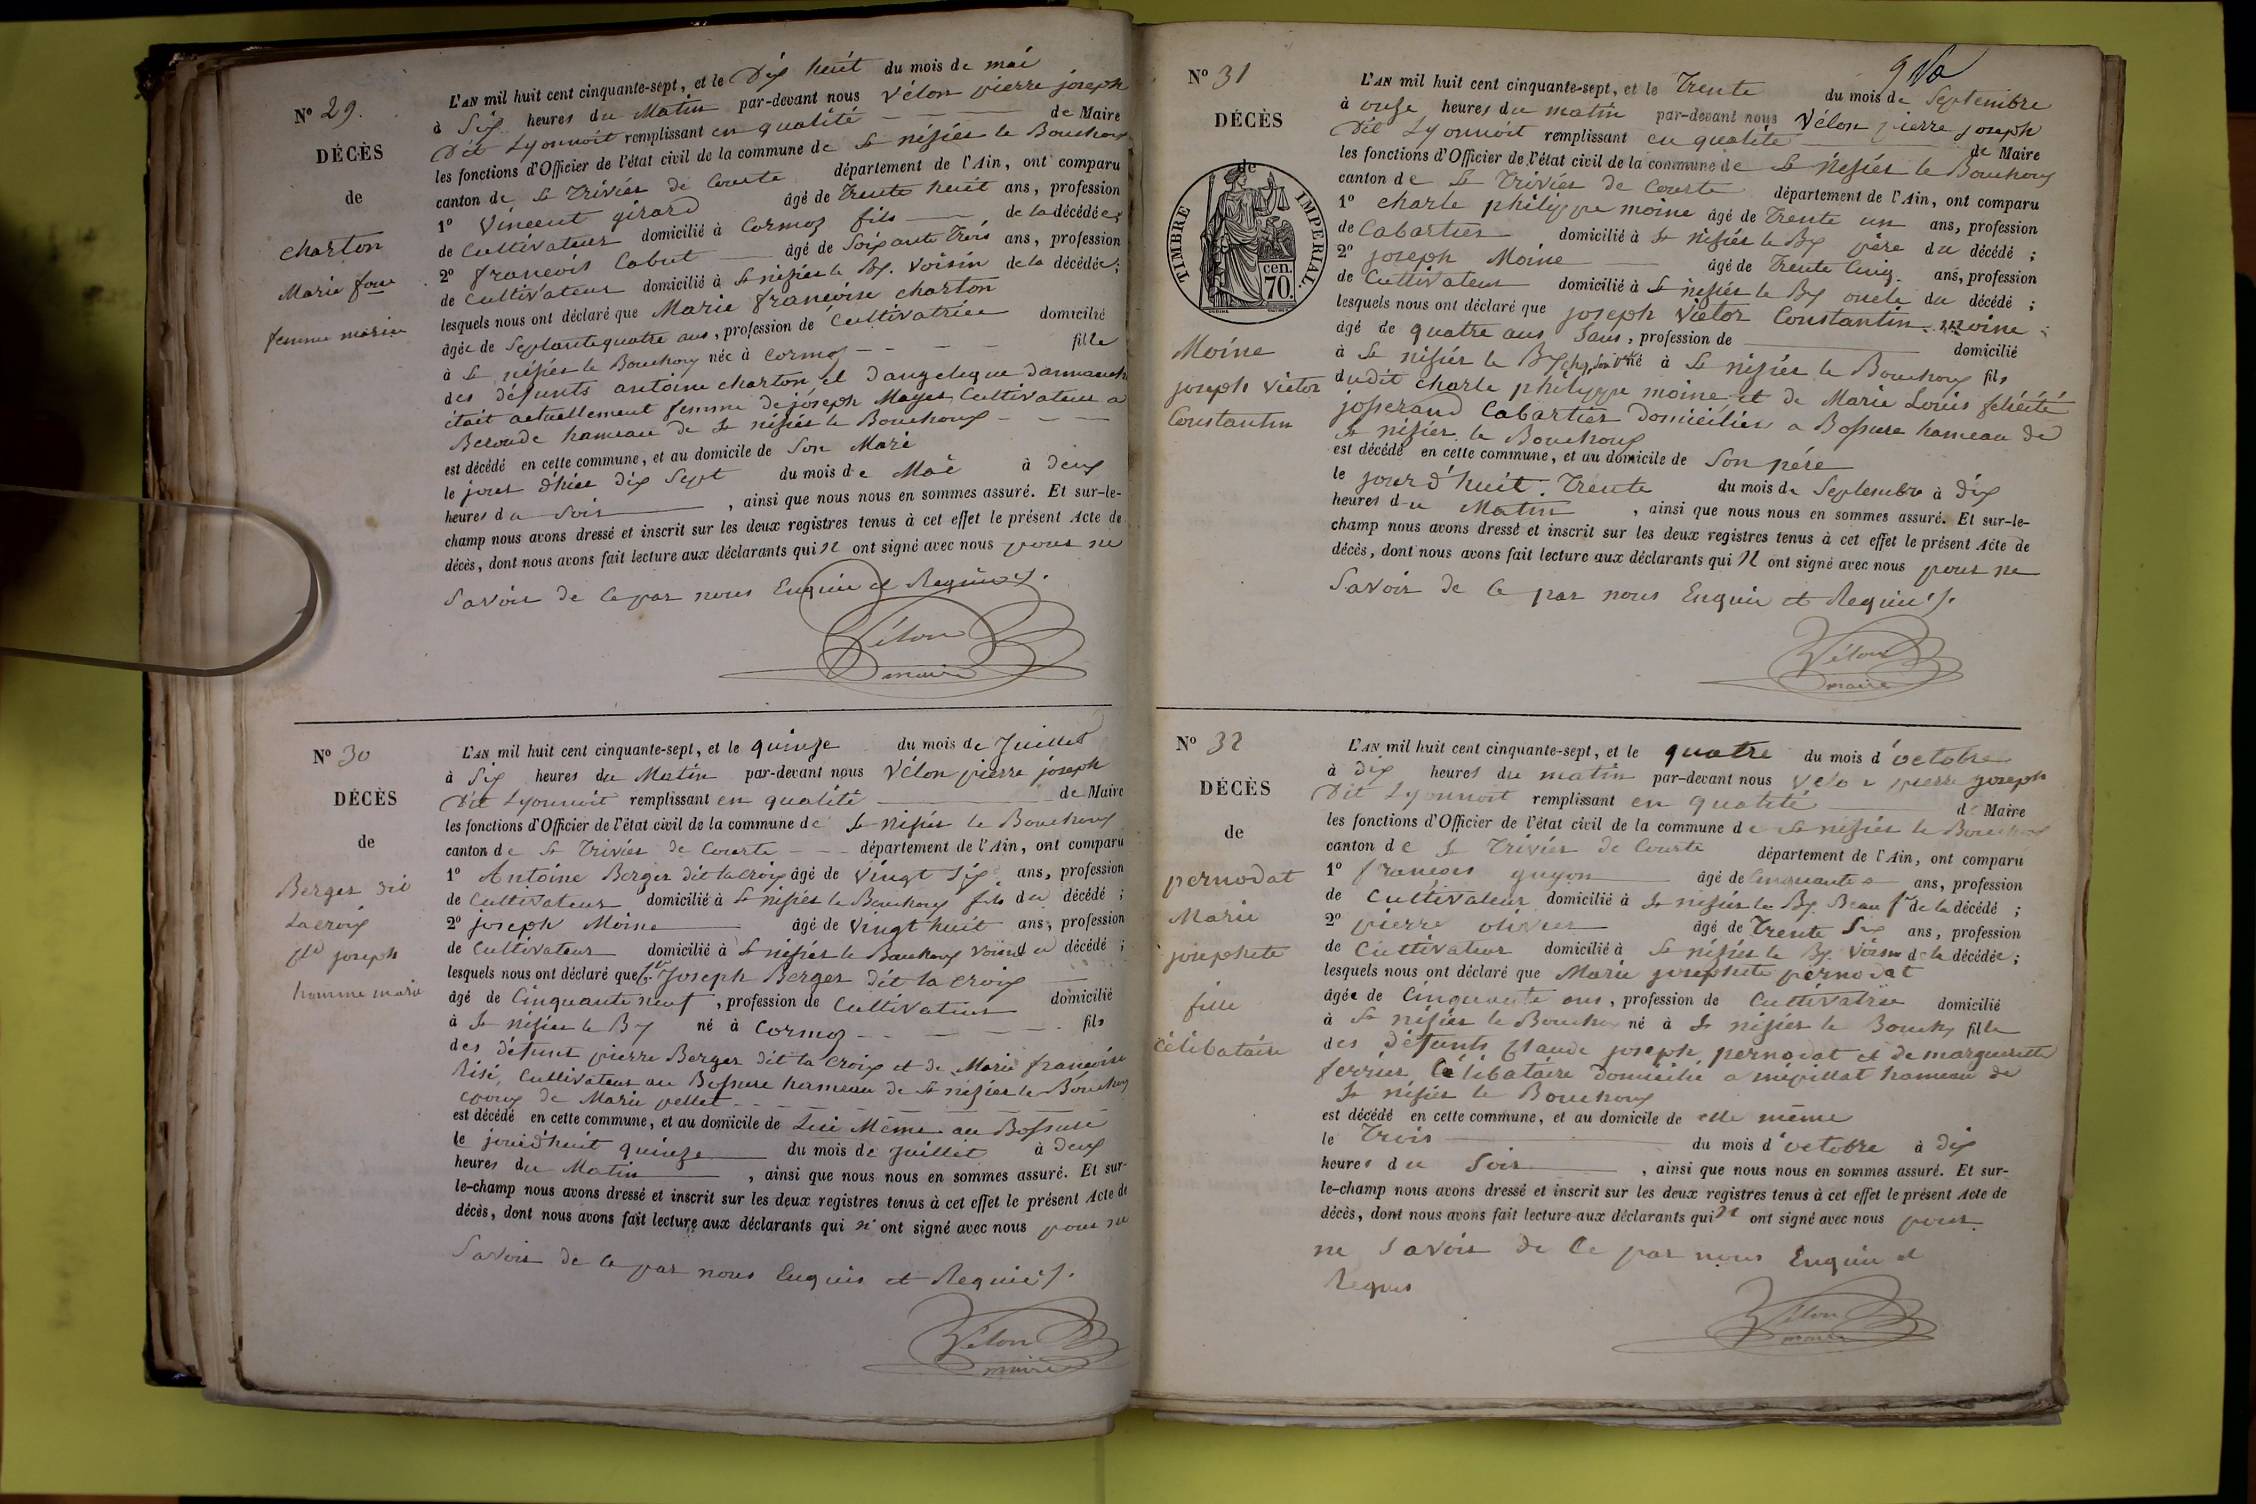 N° 29.
DÉCÈS
de
charton
Marie fоise
femme marie
L'AN mil huit cent cinquante-sept, et le Dix huit du mois de mai
à Six heures du Matin par-devant nous Vélon pierre joseph
Dit Lyonnoit remplissant en qualité de Maire
les fonctions d'Officier de l'état civil de la commune de St nisiér le Bouchoux
canton de St Triviér de Courte département de l'Ain, ont comparu
1° Vincent girard âgé de Trente huit ans, profession
de Cultivateur domicilié à Cormoz fils de la décédée;
2° francois Cabut âgé de Soixante Trois ans, profession
de Cultivateur domicilié à St nisiér le Bx. Voisin de la décédée;
lesquels nous ont déclaré que Marie francoise charton
âgée de Septante quatre ans, profession de Cultivatrice domicilié
à St nisiér le Bouchoux née à Cormoz fille
des défunts antoine charton et d'angelique
était actuellement femme de joseph Mayet Cultivateur a
Beronde hameau de St nisiér le Bouchoux
est décédé en cette commune, et au domicile de Son Mari
le jour d'hier dix Sept du mois de Mai à deux
heures du Soir, ainsi que nous nous en sommes assuré. Et sur-le-
champ nous avons dressé et inscrit sur les deux registres tenus à cet effet le présent Acte de
décès, dont nous avons fait lecture aux déclarants qui n ont signé avec nous pour ne
Savoir de Ce par nous Enquis et Requis /.
Vélon
maire
N° 30
DÉCÈS
de
Berger dit
Lacroix
joseph
homme marie
L'AN mil huit cent cinquante-sept, et le quinze du mois de Juillet
à Six heures du Matin par-devant nous Vélon pierre joseph
Dit Lyonnoit remplissant en qualité de Maire
les fonctions d'Officier de l'état civil de la commune de St Nisiér le Bouchoux
canton de St Triviér de Courte département de l'Ain, ont comparu
1° Antoine Berger dit la croix âgé de Vingt Six ans, profession
de Cultivateur domicilié à St nisiér le Bouchoux fils du décédé;
2° joseph Moine âgé de Vingt huit ans, profession
de Cultivateur domicilié à St nisiér le Bouchoux Voisin du décédé;
lesquels nous ont déclaré que Joseph Berger dit la Croix
âgé de Cinquante neuf, profession de Cultivateur domicilié
à St nisiér le Bx né à Cormoz fils
des défunt pierre Berger dit la Croix et de Marie francoise
Risé, Cultivateur au Bossure hameau de St nisiér le Bouchoux
époux de Marie pellet
est décédé en cette commune, et au domicile de Lui Même au Bossure
le jourd'huit quinze du mois de juillet à deux
heures du Matin, ainsi que nous nous en sommes assuré. Et sur-
le-champ nous avons dressé et inscrit sur les deux registres tenus à cet effet le présent Acte de
décès, dont nous avons fait lecture aux déclarants qui n ont signé avec nous pour ne
Savoir de Ce par nous Enquis et Requis /.
Vélon
maire
N° 31
DÉCÈS
de
TIMBRE IMPÉRIAL.
70. cen.
Moine
joseph Victor
Constantin
L'AN mil huit cent cinquante-sept, et le Trente du mois de Septembre
à onze heures du matin par-devant nous Vélon pierre joseph
Dit Lyonnoit remplissant en qualité de Maire
les fonctions d'Officier de l'état civil de la commune de St Nisiér le Bouchoux
canton de St Triviér de Courte département de l'Ain, ont comparu
1° charle philippe moine âgé de Trente un ans, profession
de Cabartier domicilié à St nisiér le Bx père du décédé;
2° joseph Moine âgé de Trente Cinq ans, profession
de Cultivateur domicilié à St nisiér le Bx oncle du décédé;
lesquels nous ont déclaré que joseph Victor Constantin moine
âgé de quatre ans Sans, profession de domicilié
à St nisiér le Bx né à St nisiér le Bouchoux fils
dudit charle philippe moine et de Marie Louis félicité
josserand Cabartier Domiciliér a Bossure hameau de
St nisiér le Bouchoux
est décédé en cette commune, et au domicile de Son père
le jourd'huit Trente du mois de Septembre à dix
heures du Matin, ainsi que nous nous en sommes assuré. Et sur-le-
champ nous avons dressé et inscrit sur les deux registres tenus à cet effet le présent Acte de
décès, dont nous avons fait lecture aux déclarants qui N ont signé avec nous pour ne
Savoir de Ce par nous Enquis et Requis /.
Vélon
maire
N° 32
DÉCÈS
de
pernodat
Marie
josephete
fille
Célibataire
L'AN mil huit cent cinquante-sept, et le quatre du mois d'octobre
à dix heures du matin par-devant nous Velon pierre joseph
Dit Lyonnoit remplissant en qualité de Maire
les fonctions d'Officier de l'état civil de la commune de St nisiér le Bouchoux
canton de St Triviér de Courte département de l'Ain, ont comparu
1° francois guyon âgé de Cinquante ans, profession
de Cultivateur domicilié à St nisiér le Bx. Beau fr de la décédé;
2° pierre olivier âgé de Trente Six ans, profession
de Cultivateur domicilié à St nisiér le Bx Voisin de la décédée;
lesquels nous ont déclaré que Marie josephete pernodat
âgée de Cinquante ans, profession de Cultivatrice domicilié
à St nisiér le Bouchoux né à St nisiér le Bouchx fille
des défunts Claude joseph pernodat et de marguerite
ferrier Célibataire Domicilié a mépillat hameau de
St nisiér le Bouchoux
est décédé en cette commune, et au domicile de elle même
le Trois du mois d'octobre à dix
heures du Soir, ainsi que nous nous en sommes assuré. Et sur-
le-champ nous avons dressé et inscrit sur les deux registres tenus à cet effet le présent Acte de
décès, dont nous avons fait lecture aux déclarants qui n ont signé avec nous pour
ne Savoir de Ce par nous Enquis et
Requis
Vélon
maire